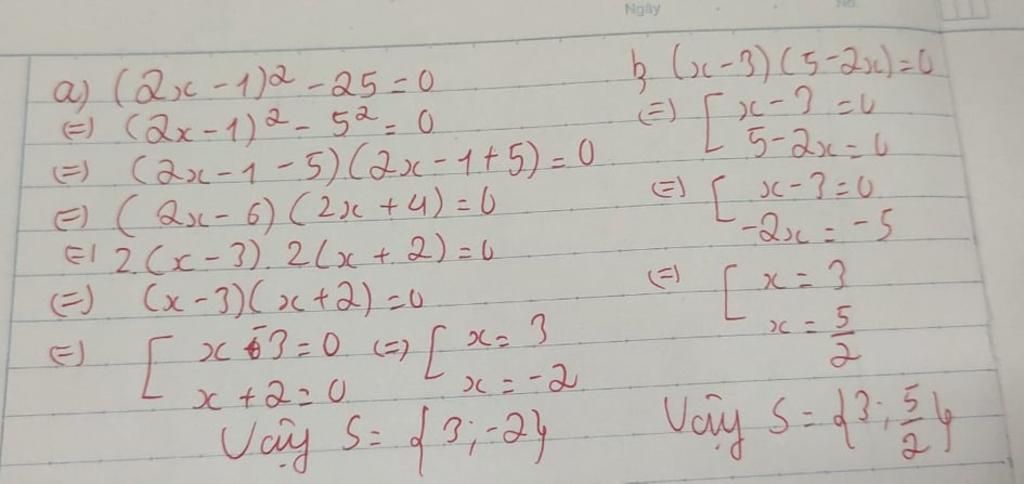 Ngày
No.
a) (2x - 1)² - 25 = 0
(=) (2x - 1)² - 5² = 0
(=) (2x - 1 - 5)(2x - 1 + 5) = 0
(=) (2x - 6)(2x + 4) = 0
(=) 2(x - 3). 2(x + 2) = 0
(=) (x - 3)(x + 2) = 0
(=) [ x - 3 = 0 (=) [ x = 3
x + 2 = 0 x = -2
Vậy S = {3; -2}
b, (x - 3)(5 - 2x) = 0
(=) [ x - 3 = 0
5 - 2x = 0
(=) [ x - 3 = 0
-2x = -5
(=) [ x = 3
x = 5/2
Vậy S = {3; 5/2}